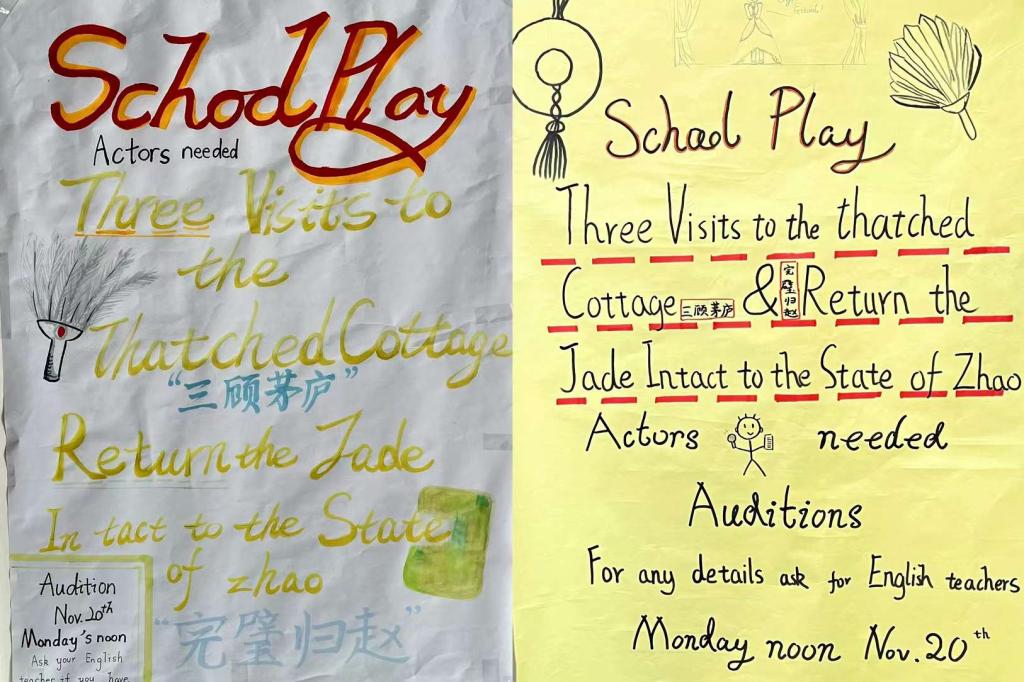 School Play
Actors needed
Three Visits to
the
Thatched Cottage
“三顾茅庐”
Return the Jade
In tact to the State
of zhao
“完璧归赵”
Audition
Nov. 20th
Monday's noon
Ask your English
teacher if you have
School Play
Three Visits to the thatched
Cottage 三顾茅庐 & 完璧归赵 Return the
Jade Intact to the State of Zhao
Actors needed
Auditions
For any details ask for English teachers
Monday noon Nov. 20th